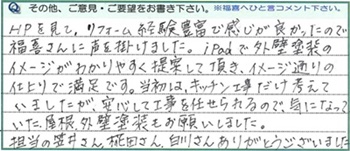 Q その他、ご意見・ご要望をお書き下さい。※福喜へひと言コメント下さい。
HPを見て、リフォーム経験豊富で感じが良かったので
福喜さんに声を掛けました。iPadで外壁塗装の
イメージがわかりやすく提案して頂き、イメージ通りの
仕上りで満足です。当初は、キッチン工事だけ考えて
いましたが、安心して工事を任せられるので気になって
いた、屋根外壁塗装もお願いしました。
担当の笠井さん、椛田さん、白川さんありがとうございました